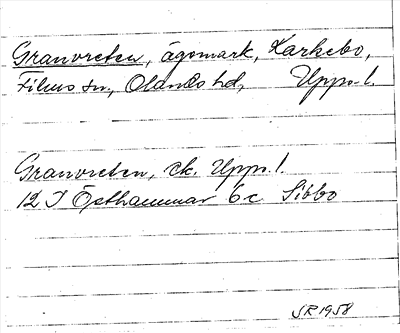 Granvreten, ägomark, Karkebo,
Films sn, Olands hd, Upps. l.
Granvreten, ek. Upps. l.
12 I Östhammar 6c Sibbo
SR 1958